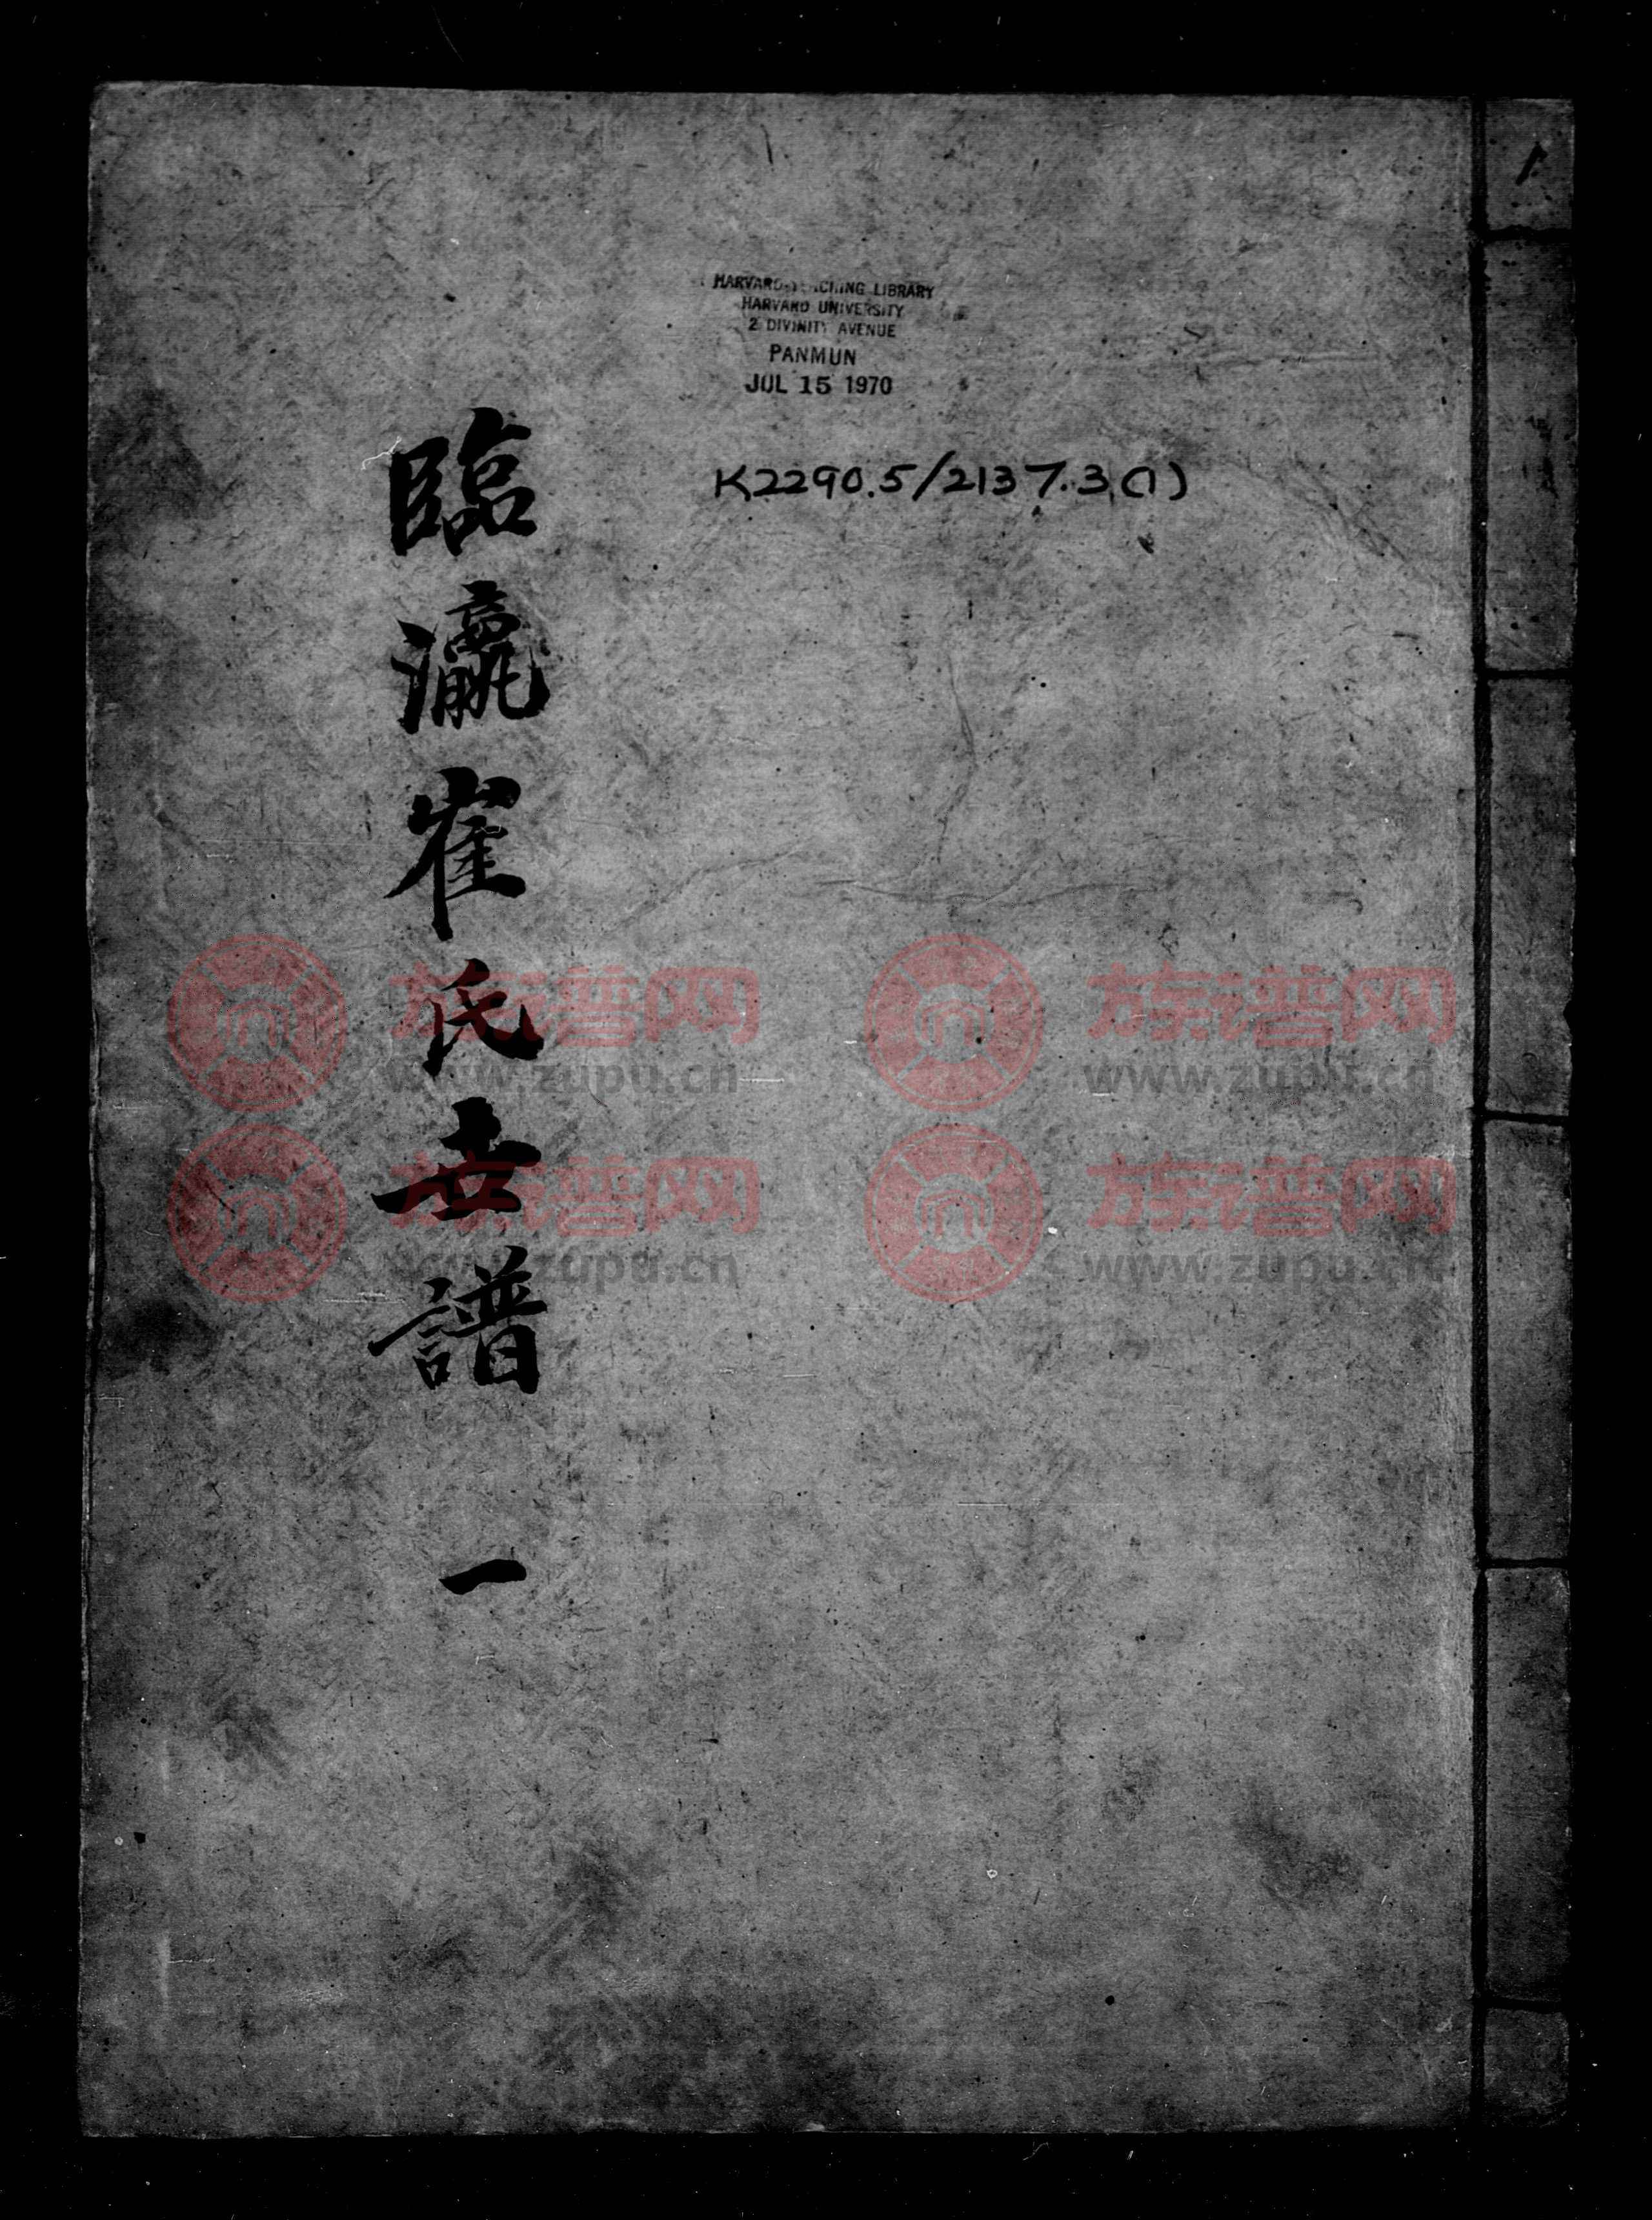 HARVARD- CHING LIBRARY
HARVARD UNIVERSITY
2 DIVINITY AVENUE
PANMUN
JUL 15 1970
K2290.5/2137.3(1)
臨瀛崔氏世譜 一
族谱网 族谱网
www.zupu.cn www.zupu.cn
族谱网 族谱网
www.zupu.cn www.zupu.cn